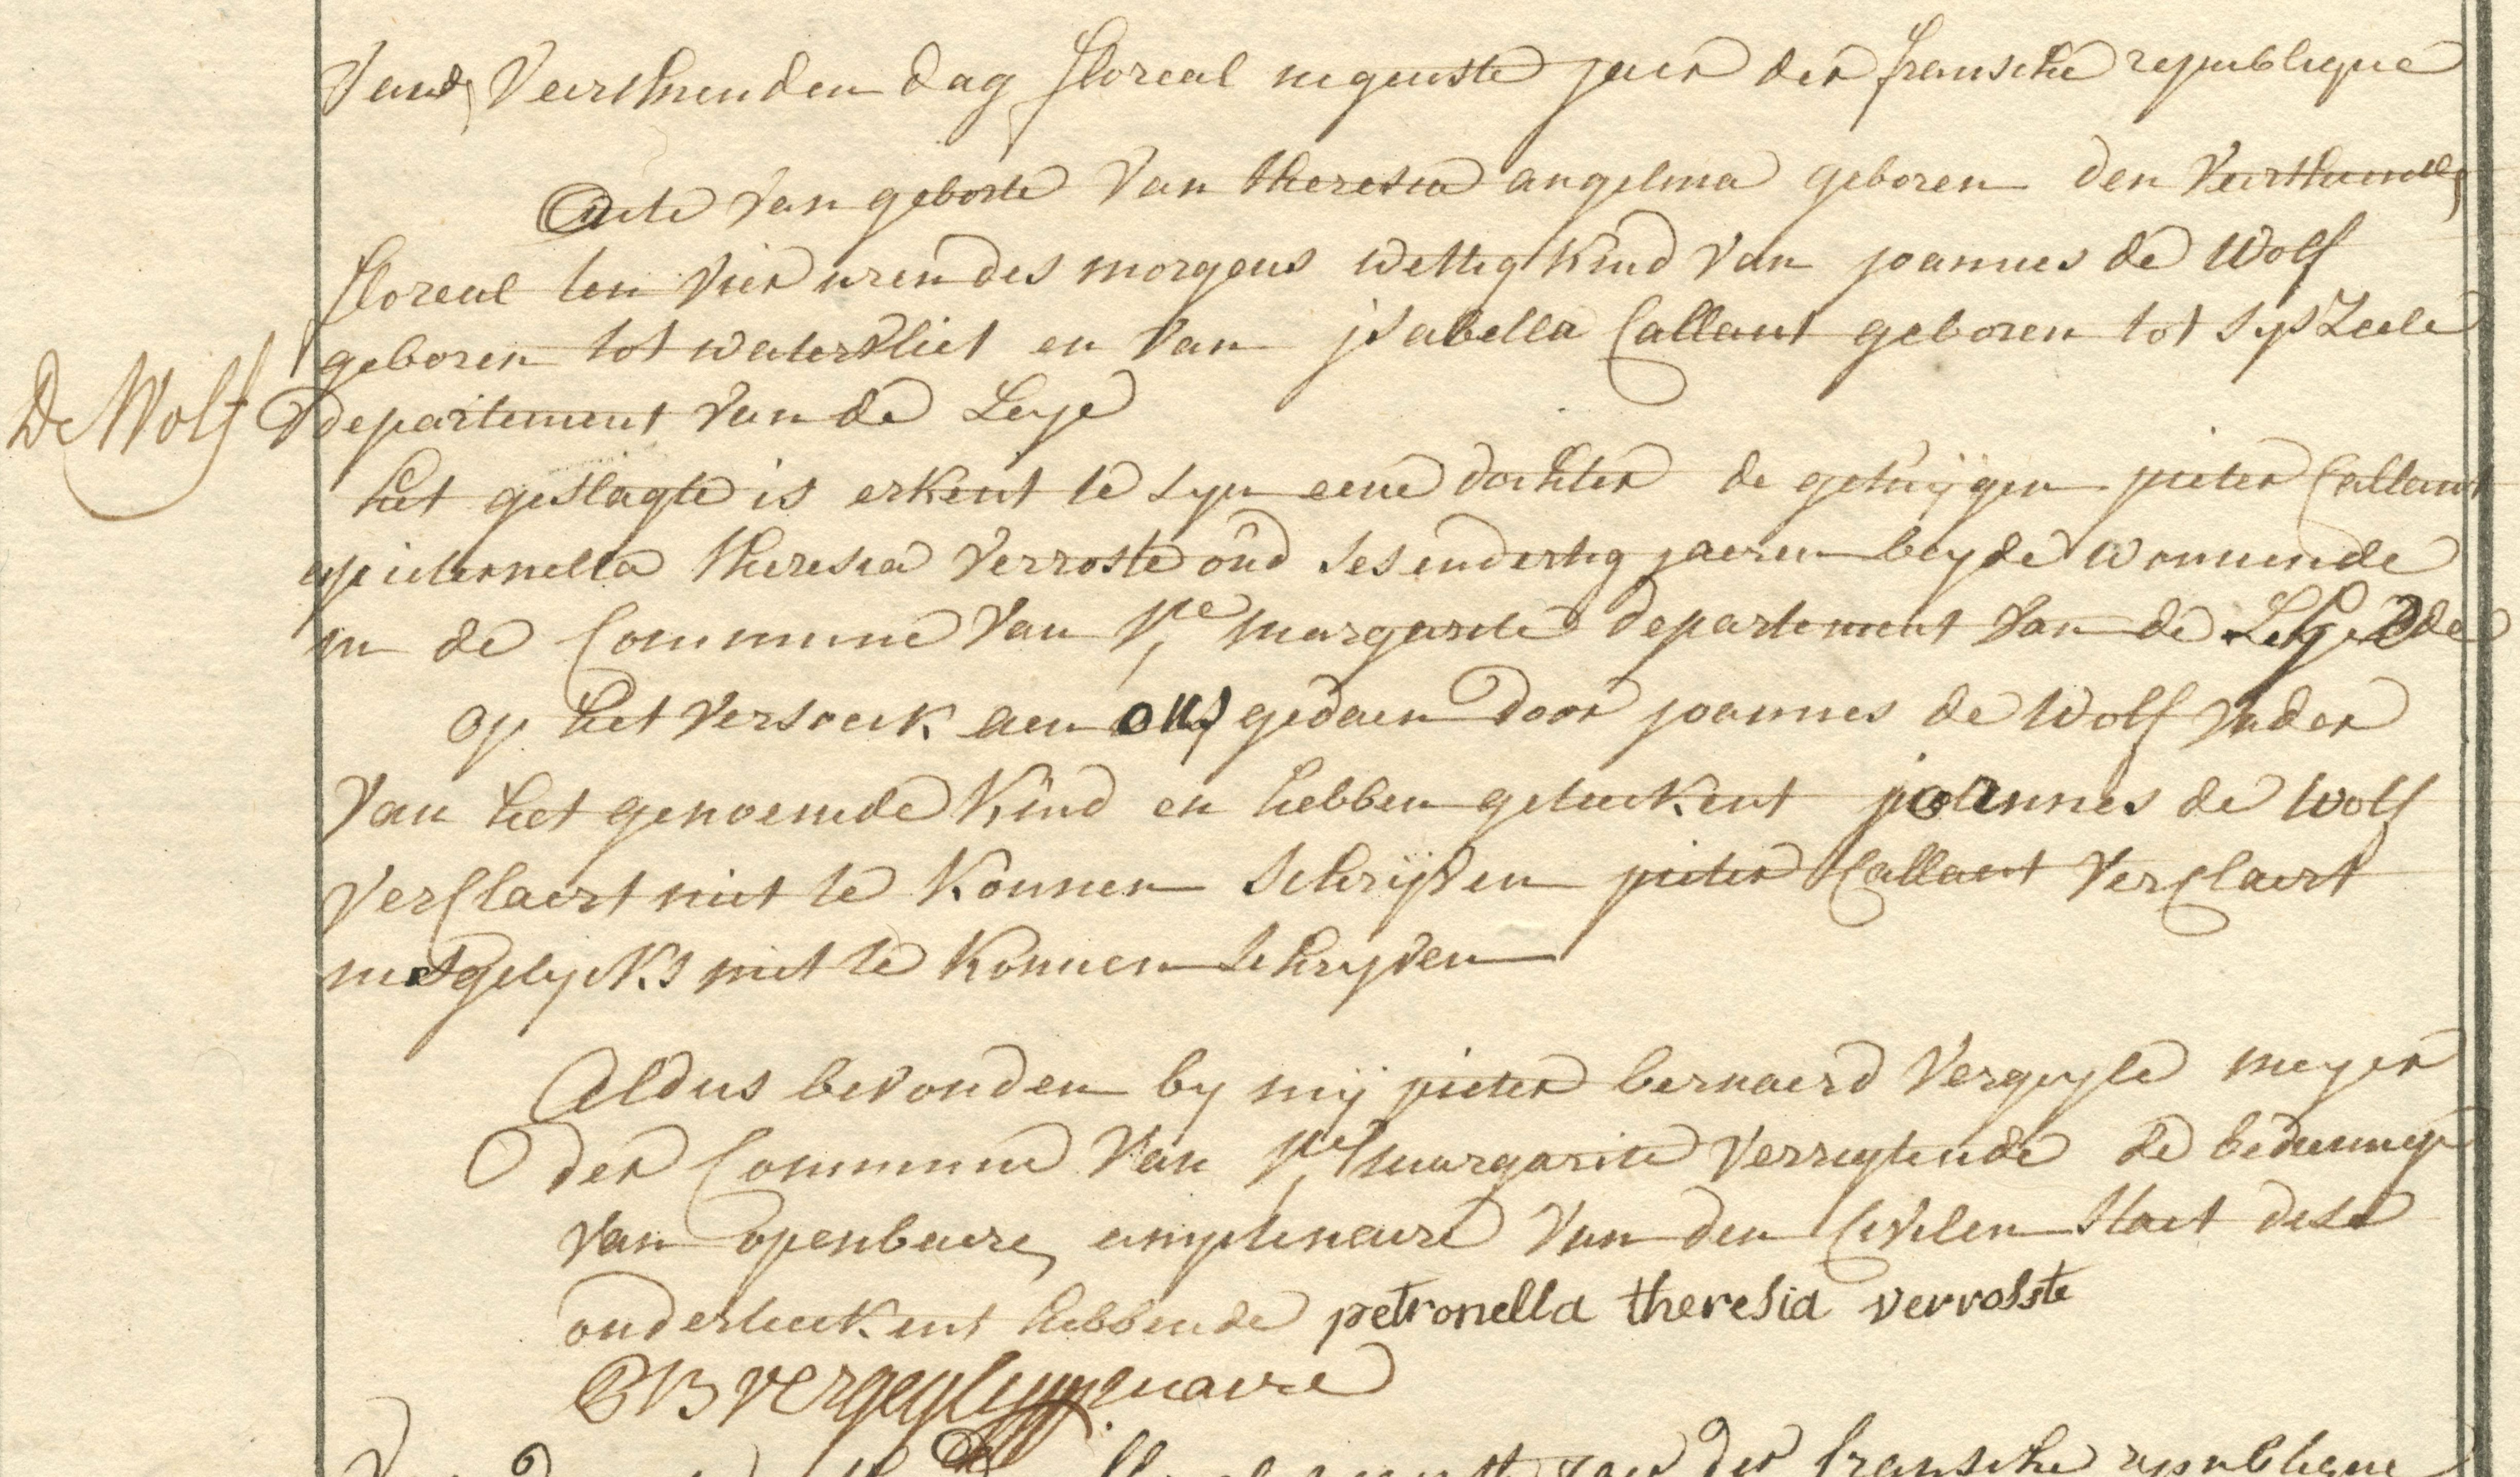 Vand Veerthienden dag floreal negenste jaer der fransche republique
Acte van geborte van theresia angelina geboren den Veerthiende
floreal ten vier uren des morgens wettig kind van joannes de Wolf
geboren tot watervliet en van jsabella Callant geboren tot sysZeele
De Wolf
departement van de Leye
het geslagte is erkent te syn eene dochter de getuijgen pieter Callant
pieternella theresia Verroste oud sesendertig jaeren beyde wonnende
in de Commune van Ste margarite departement van de Leye de
op het versoeck aen ons gedaen door joannes de Wolf vader
van het genoemde kind en hebben geteekent joannes de Wolf
verClaert niet te konnen schrijven pieter Callant verClaert
insgelycks niet te konnen schryven
Aldus bevonden by mij pieter bernaerd Vergeyle meyer
der Commune van Ste margarite verregtende de bedieninge
van openbaere amptenaere van den Civilen staet dese
onderteekent hebbende petronella theresia verrosste
PB Vergeyle maire
der fransche republique